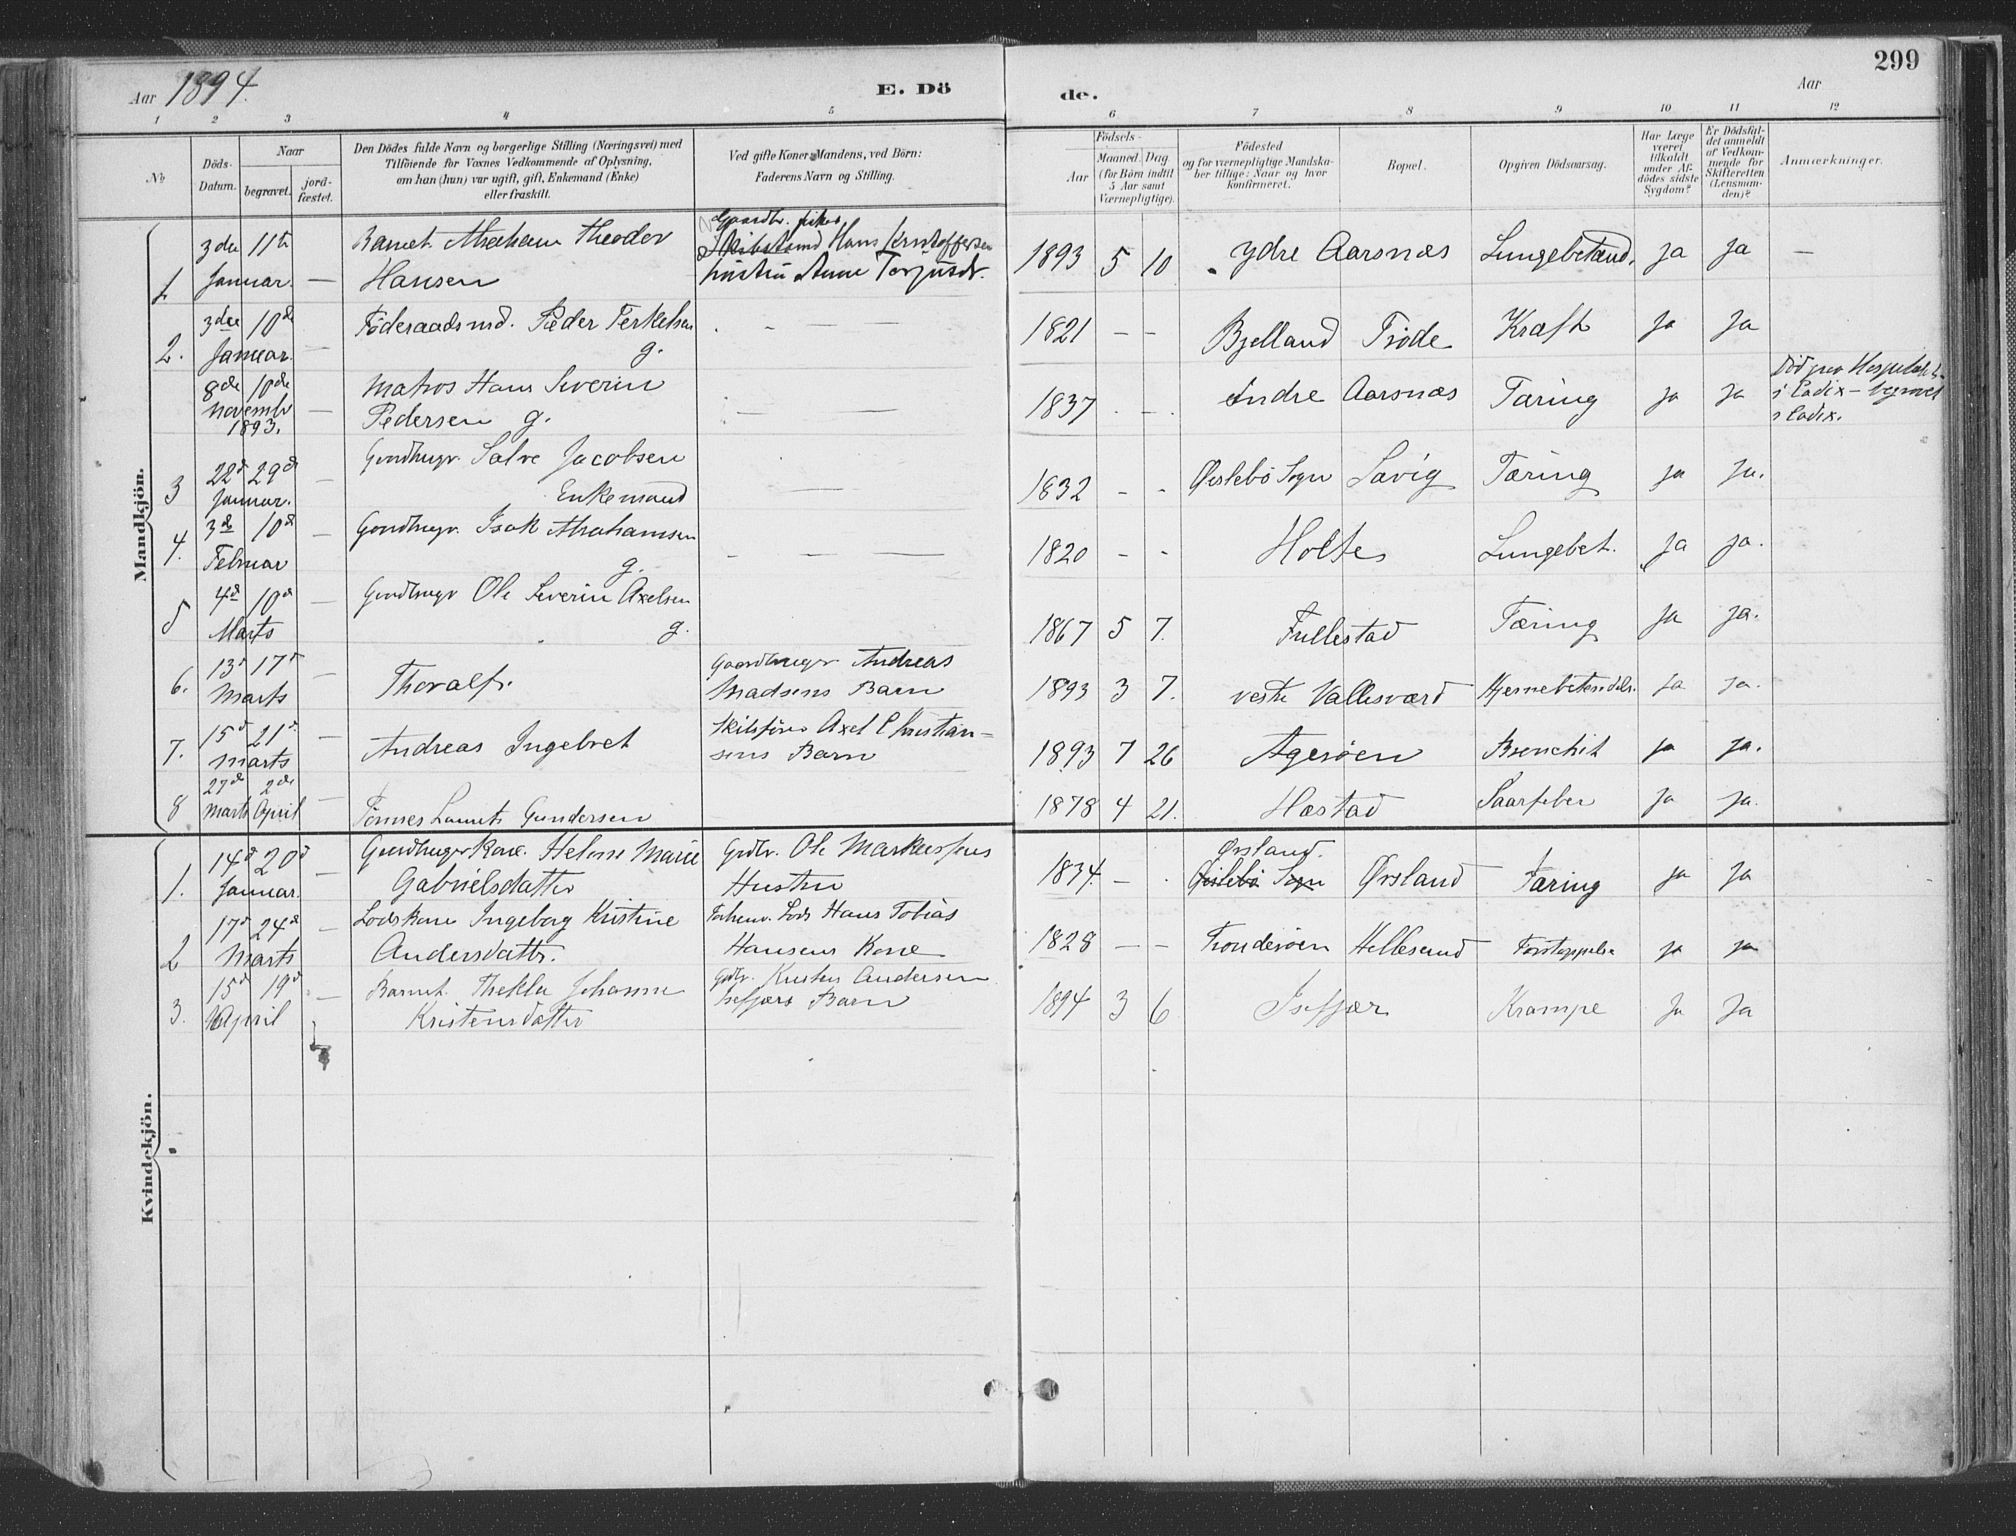 299
Aar 1894.
E. Dö
de.
Aar
1 2 3 4 5 6 7 8 9 10 11 12
No
Döds-Datum.
Naar
begravet.
jord-fæstet.
Den Dödes fulde Navn og borgerlige Stilling (Næringsvei) med
Tilföiende for Voxnes Vedkommende af Oplysning,
om han (hun) var ugift, gift, Enkemand (Enke)
eller fraskilt.
Ved gifte Koner Mandens, ved Börn:
Faderens Navn og Stilling.
Födsels-
Aar
Maaned. Dag
(for Börn indtil
5 Aar samt
Værnepligtige).
Födested
og for værnepligtige Mandska-
ber tillige: Naar og hvor
konfirmeret.
Bopæl.
Opgiven Dödsaarsag.
Har Læge
været
tilkaldt
under Af-
dödes sidste
Sygdom?
Er Dödsfal-
det anmeldt
af Vedkom-
mende for
Skifteretten
(Lensman-
den)?
Anmærkninger.
Mandkjön.
1 3die Januar. 11te — Barnet Abraham Theodor Hansen Gaardbr. Hans Kristoffersen Hustru Anne Terjusdr. 1893 5 10 Ydre Aarsnæs Lungebetænd. Ja Ja —
2. 3die Januar. 10de — Föderaadsmd. Peder Terkelsen g. 1821 — — Bjelland Tröde Kræft Ja Ja
8de Novembr 1893. 10de — Matros Hans Severin Pedersen g. — — 1837 - - Indre Aarsnæs Tæring Ja Ja Död paa Hospitalet i Cadix — begravet i Cadix.
3 22d Januar. 29de — Gaardbrugr. Salve Jacobsen Enkemand — 1832 - - Øislebö Sogn Lavig Tæring Ja Ja.
4. 3de Februar 10de — Gaardbrugr. Isak Abrahamsen g. — — — 1820 - - Holte Lungebet. Ja Ja.
5 4de Marts 10de — Gaardbrugr Ole Severin Axelsen g. 1867 5 7. Fullestad Tæring Ja Ja.
6. 13d Marts 17d — Thoralf. Gaardbrugr Andreas Madsens Barn 1893 3 7. vestre Vallesværd Hjernebetændelse Ja Ja.
7. 15d Marts 21d — Andreas Ingebret Skibsförer Axel Christian-
sens Barn 1893 7 26 Ageröen Bronchit Ja Ja.
8 27de Marts 2de April — Tönnes Laurits Gundersen 1878 4 21. Hæstad Saarfeber Ja Ja.
Kvindekjön.
1. 14d Januar. 20d — Gaardbruger Kone. Helene Marie Gabrielsdatter Grdbr. Ole Markussens Hustru 1834. — . Ørsland. Øislebö Sogn Ørsland Tæring Ja Ja
2 17d Marts 24de — Lods Kone Ingeborg Kristine Andersdattr. Forhenv. Lods Hans Tobias Hansens Kone 1828 — — Tronderöen Hellesund Forstoppelse Ja Ja
3. 15d April 19d — Barnet Thekla Johanne Kristensdatter Grdbr. Kristen Andersen Isefjærs Barn 1894 3 6 Isefjær Krampe Ja Ja